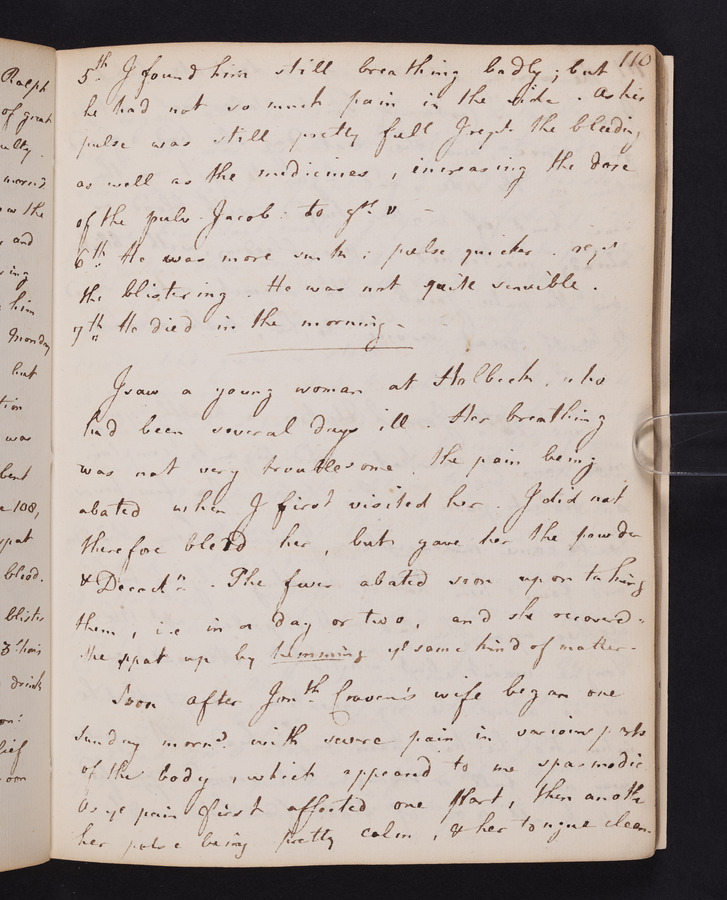 110
5th I found him still breathing badly; but
he had not so much pain in the side. As his
pulse was still pretty full I rept. the bleeding
as well as the medicines, increasing the dose
of the pulv. Jacob: to gr. v
6th He was more sunk; pulse quicker. rept
the blistering. He was not quite sensible.
7th He died in the morning.
I saw a young woman at Holbeck, who
had been several days ill. Her breathing
was not very troublesome, the pain being
abated when I first visited her. I did not
therefore bleed her, but gave her the powder
& Decoctn. The fever abated soon upon taking
them, i.e in a day or two, and she recoverd.
She spat up by hemming ye same kind of matter.
Soon after Jonth. Craven's wife began one
sunday morng. with severe pain in various parts
of the body, which appeared to me spasmodic
As ye pain first affected one part, then anothe
her pulse being pretty calm, & her tongue clean.
Ralph
of great
ulty.
morng
the
and
ing
him
Monday
but
was
bent
108,
spat
blood.
blister
drink
lief
oon